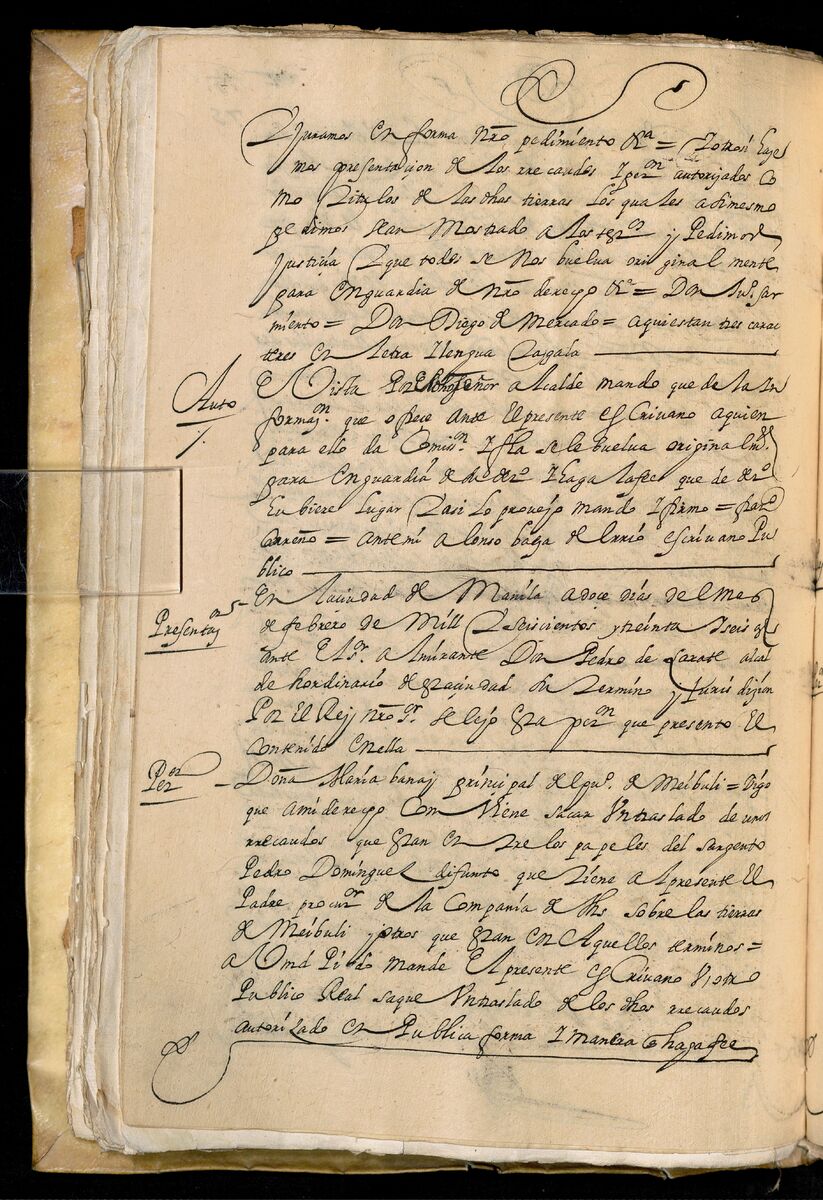 Y juramos en forma nro pedimiento &a = Y otrosi haze
mos presentacion de los rrecaudos Y per.on autorizados co
mo titulos de las dhas tierras los quales asimesmo
pedimos sean mostrado a los tgos y Pedimos
Justicia Y que todos se nos buelua originalmente
para en guardia de nro derecho &a = Don Ju.o sar
miento = Don Diego de Mercado = aqui estan tres carac
teres en letra Y lengua tagala
Auto
E Vista Por el dho señor alcalde mando que de la in
formaz.n que ofrece ante el presente escriuano aquien
para ello da Comiss.n Y fha se le buelua originalm.te
para en guardia de su dr.o Y haga la fee que de dr.o
hubiere lugar Y asi lo proveyo mando Y firmo =
carreño = ante mi alonso baeza del rrio escriuano Pu
blico
Presentaz.on
En la ciudad de Manila a doce dias del mes
de febrero de Mill Y seiscientos y treinta Y seis a.s
ante El s.r almirante Don Pedro de sarate alcal
de hordinario de esta ciudad su termino y Jurisdizion
Por El Rey nro s.r se leyo esta pet.on que presento El
contenido en ella
Pet.on
Doña Maria banaj principal del pu.o de Meibuli = digo
que a mi derecho Conviene sacar Un traslado de unos
rrecaudos que estan entre los papeles del sargento
Pedro Dominguez difunto que tiene al presente El
Padre procur.or de la Compania de Jhs sobre las tierras
de Meibuli y otros que estan en aquellos terminos =
a Vmd Pido mande El presente escriuano U otro
Publico Real saque Un traslado de los dhos rrecaudos
autorizado en Publica forma Y manera q haga fee